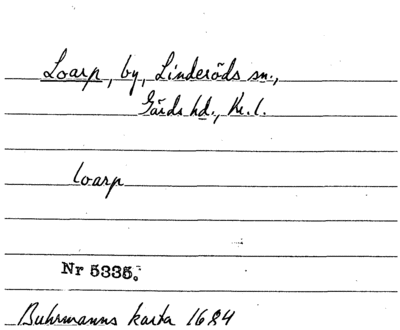 Loarp, by, Linderöds sn.,
Gärds hd., Kr. l.
Loarp
Nr 5335.
Buhrmanns karta 1684